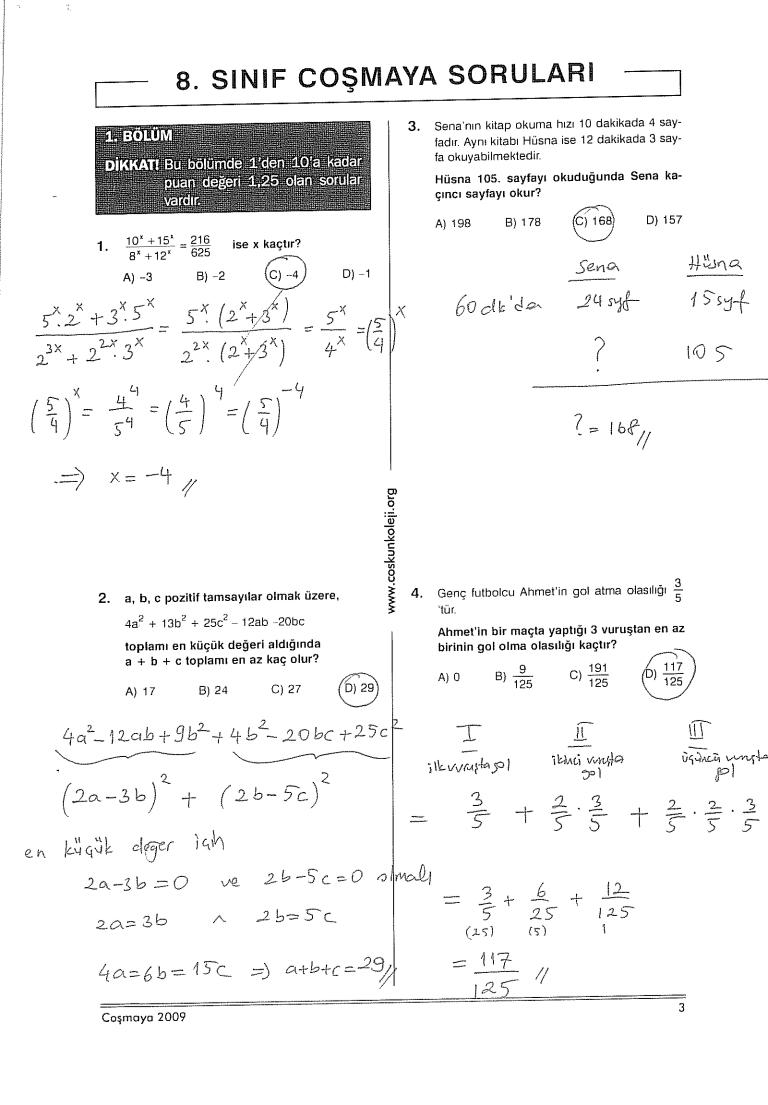 8. SINIF COŞMAYA SORULARI
1. BÖLÜM
DİKKAT! Bu bölümde 1'den 10'a kadar
puan değeri 1,25 olan sorular
vardır.
1. (10^x + 15^x)/(8^x + 12^x) = 216/625 ise x kaçtır?
A) -3 B) -2 C) -4 D) -1
(5^x.2^x + 3^x.5^x)/(2^3x + 2^2x.3^x) = (5^x.(2^x+3^x))/(2^2x.(2^x+3^x)) = 5^x/4^x = (5/4)^x
(5/4)^x = 4^4/5^4 = (4/5)^4 = (5/4)^-4
⇒ x = -4 //
2. a, b, c pozitif tamsayılar olmak üzere,
4a² + 13b² + 25c² – 12ab –20bc
toplamı en küçük değeri aldığında
a + b + c toplamı en az kaç olur?
A) 17 B) 24 C) 27 D) 29
4a²-12ab+9b²+4b²-20bc+25c²
(2a-3b)² + (2b-5c)²
en küçük değer için
2a-3b=0 ve 2b-5c=0 olmalı
2a=3b ∧ 2b=5c
4a=6b=15c ⇒ a+b+c=29//
3. Sena'nın kitap okuma hızı 10 dakikada 4 say-
fadır. Aynı kitabı Hüsna ise 12 dakikada 3 say-
fa okuyabilmektedir.
Hüsna 105. sayfayı okuduğunda Sena ka-
çıncı sayfayı okur?
A) 198 B) 178 C) 168 D) 157
Sena Hüsna
60 dk'da 24 syf 15 syf
? 105
? = 168//
4. Genç futbolcu Ahmet'in gol atma olasılığı 3/5
'tür.
Ahmet'in bir maçta yaptığı 3 vuruştan en az
birinin gol olma olasılığı kaçtır?
A) 0 B) 9/125 C) 191/125 D) 117/125
I II III
ilk vuruşta gol ikinci vuruşta gol üçüncü vuruşta gol
= 3/5 + 2/5 . 3/5 + 2/5 . 2/5 . 3/5
= 3/5 + 6/25 + 12/125
(25) (5) 1
= 117/125 //
www.coskunkoleji.org
Coşmaya 2009
3